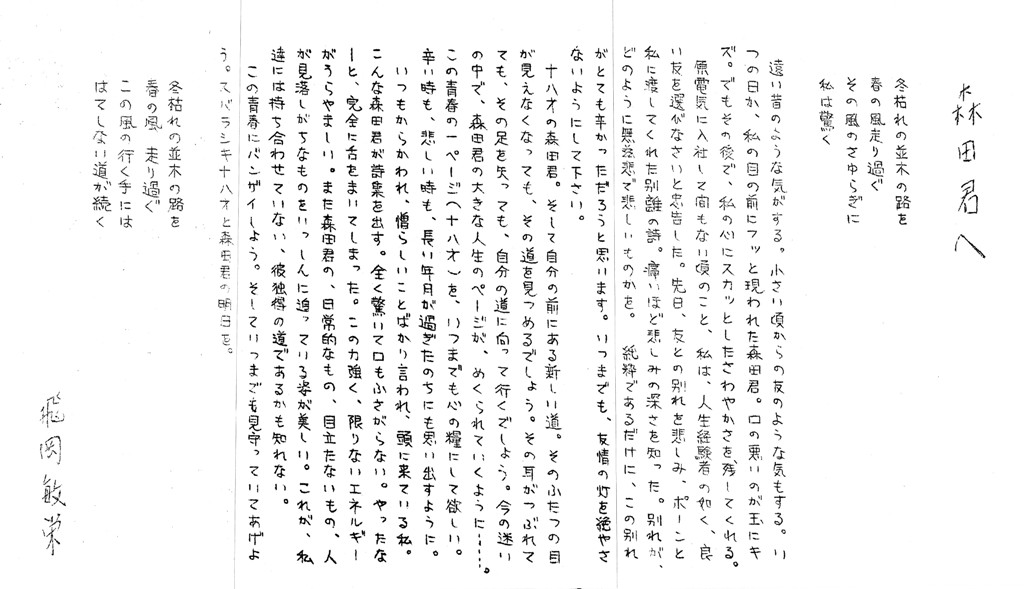 森田君へ
冬枯れの並木の路を
春の風走り過ぐ
その風のさゆらぎに
私は驚く
遠い昔のような気がする。小さい頃からの友のような気もする。い
つの日か、私の目の前にフッと現われた森田君。口の悪いのが玉にキ
ズ。でもその後で、私の心にスカッとしたさわやかさを残してくれる。
原電気に入社して間もない頃のこと、私は、人生経験者の如く、良
い友を選びなさいと忠告した。先日、友との別れを悲しみ、ポーンと
私に渡してくれた別離の詩。痛いほど悲しみの深さを知った。別れが、
どのように無慈悲で悲しいものかを。純粋であるだけに、この別れ
がとても辛かっただろうと思います。いつまでも、友情の灯を絶やさ
ないようにして下さい。
十八才の森田君。そして自分の前にある新しい道。そのふたつの目
が見えなくなっても、その道を見つめるでしょう。その耳がつぶれて
ても、その足を失っても、自分の道に向って行くでしょう。今の迷い
の中で、森田君の大きな人生のページが、めくられていくように……。
この青春の一ページ(十八才)を、いつまでも心の糧にして欲しい。
辛い時も、悲しい時も、長い年月が過ぎたのちにも思い出すように。
いつもからかわれ、憎らしいことばかり言われ、頭に来ている私。
こんな森田君が詩集を出す。全く驚いて口もふさがらない。やったな
ーと、完全に舌をまいてしまった。この力強く、限りないエネルギー
がうらやましい。また森田君の、日常的なもの、目立たないもの、人
が見落しがちなものをいっしんに迫っている姿が美しい。これが、私
達には持ち合わせていない、彼独得の道であるかも知れない。
この青春にバンザイしよう。そしていつまでも見守っていてあげよ
う。スバラシキ十八才と森田君の明日を。
冬枯れの並木の路を
春の風 走り過ぐ
この風の行く手には
はてしない道が続く
飛岡敏栄